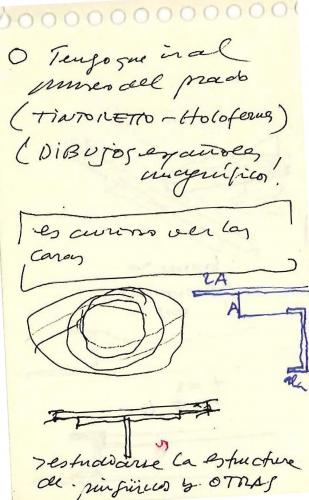 Tengo que ir al
museo del prado
(TINTORETTO - Holofernes)
(DIBUJOS españoles
magníficos!
es curioso ver las
caras
2A
A
>estudiarse la estructura
de pingüinos y OTRAS